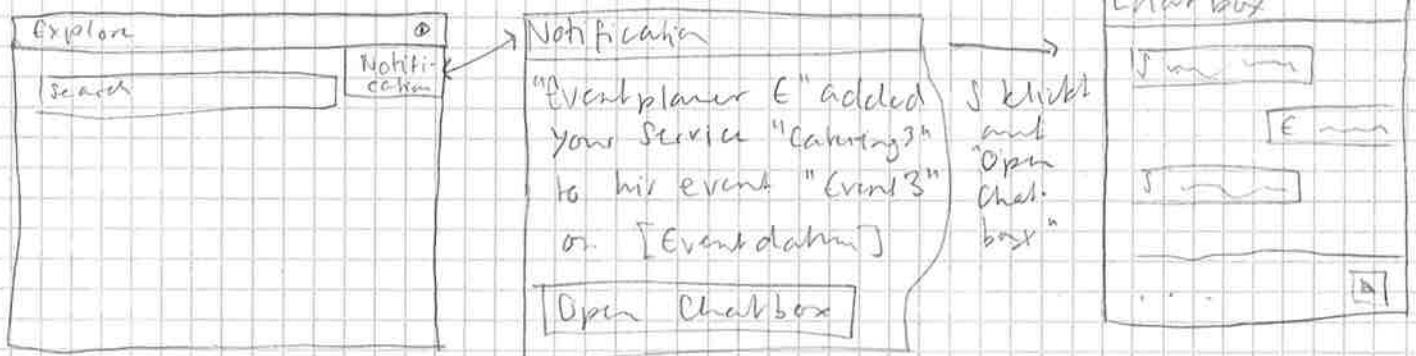 Explore
Search
Notifi-
cation
Notification
"Eventplaner E" added
your Service "Catering3"
to his event "Event3"
on [Eventdatum]
Open Chatbox
S klickt
auf
"Open
Chat-
box"
Chatbox
S
E
S
...